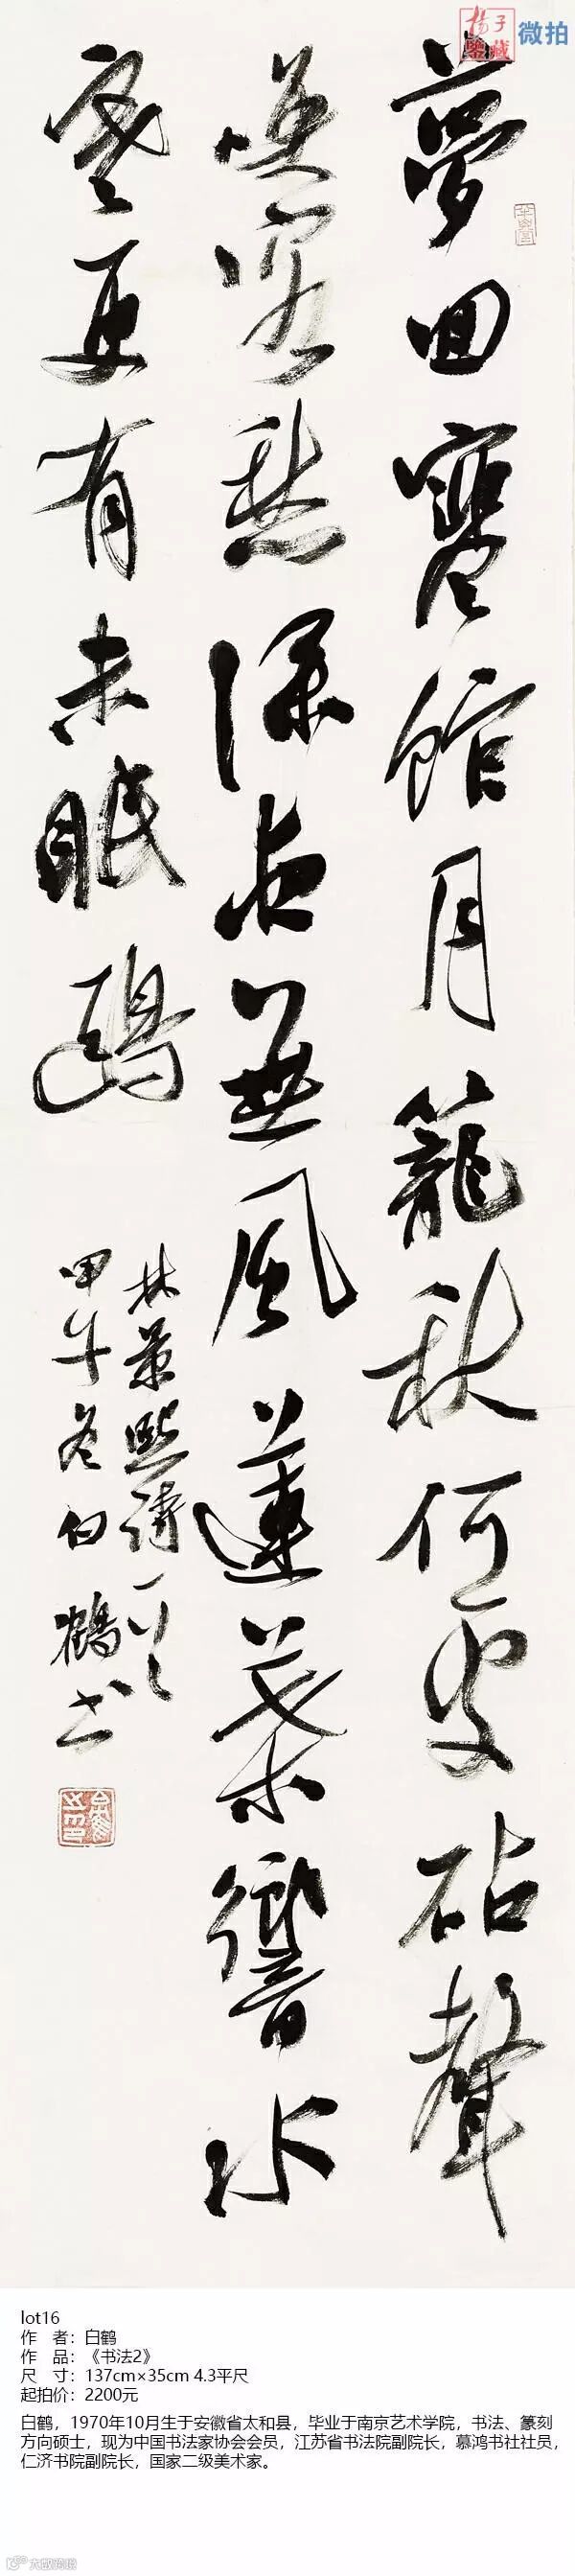 楊子
鑒藏
微拍
夢回館月籠秋何處砧聲
喚客愁深夜無風蓮葉響水
寒更有未眠鷗
林景熙詩一首
甲午冬白鶴書
lot16
作 者：白鹤
作 品：《书法2》
尺 寸：137cm×35cm 4.3平尺
起拍价：2200元
白鹤，1970年10月生于安徽省太和县，毕业于南京艺术学院，书法、篆刻
方向硕士，现为中国书法家协会会员，江苏省书法院副院长，慕鸿书社社员，
仁济书院副院长，国家二级美术家。